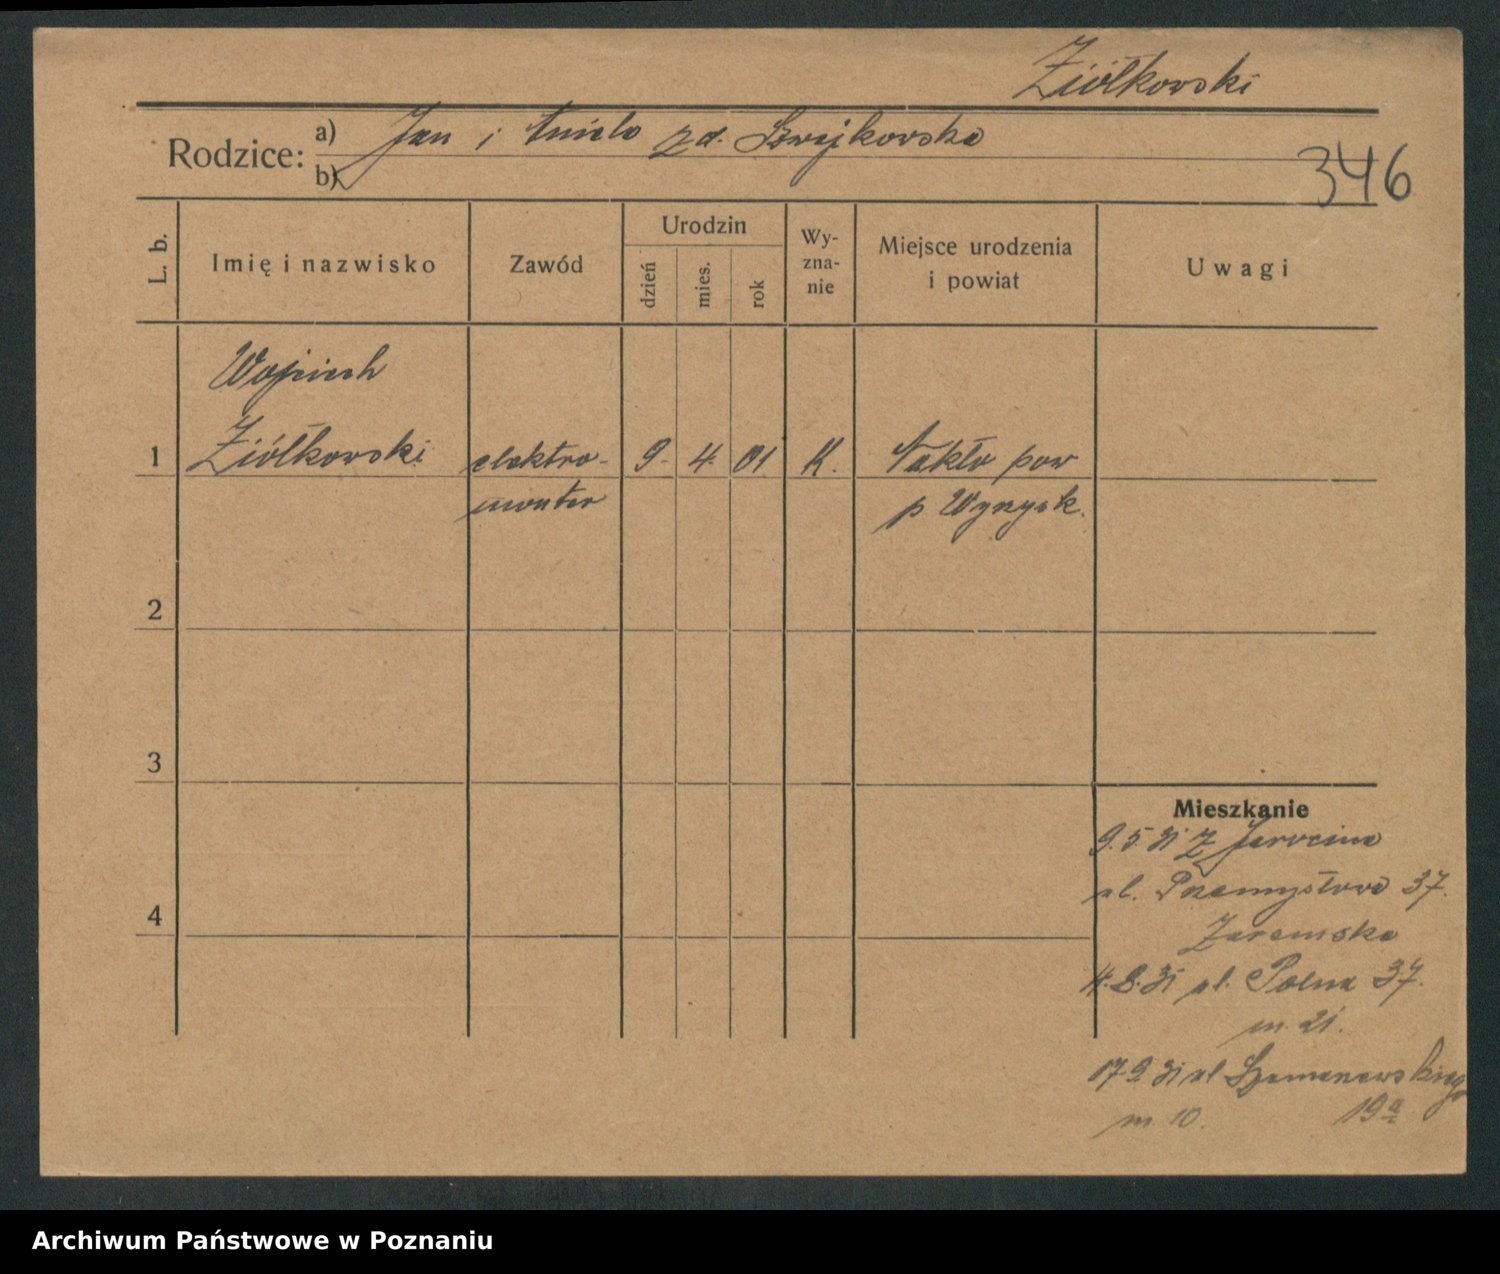 Ziółkowski
Rodzice: a) Jan i Aniela z d. Szwajkowska
b)
346
L. b.
Imię i nazwisko
Zawód
Urodzin
dzień
mies.
rok
Wy-
zna-
nie
Miejsce urodzenia
i powiat
Uwagi
Wojciech
1 Ziółkowski elektro- 9. 4. 01 K. Nakło pow
monter p Wyrzysk.
2
3
Mieszkanie
9.5 31 z Jarocina
ul. Przemysłowa 37.
4
Zaremska
4.8.31 ul. Polna 37.
m. 21.
17 9 31 ul Szamarzewskiego
m 10. 19a
Archiwum Państwowe w Poznaniu